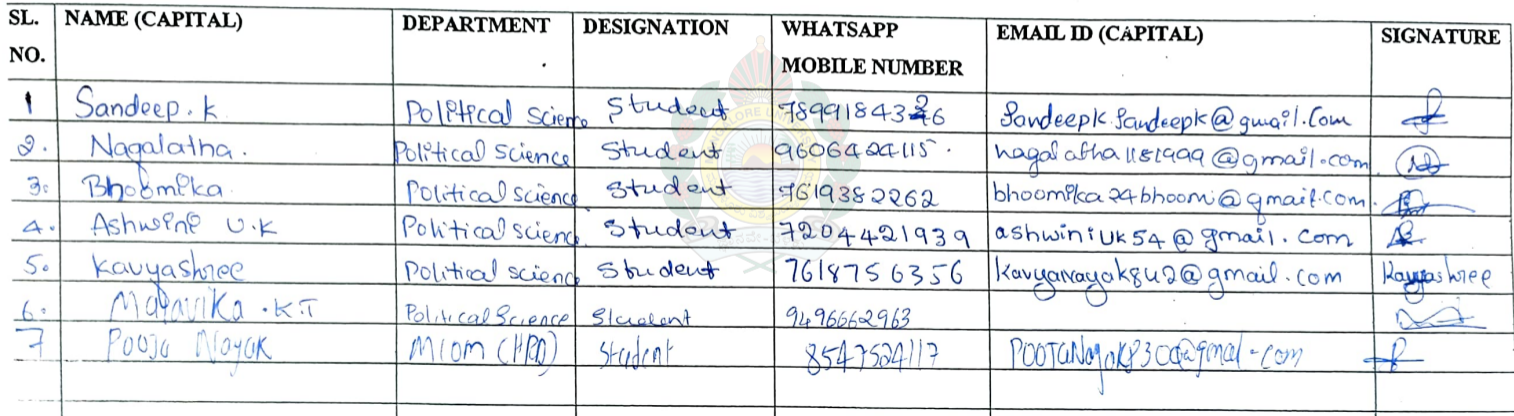 SL. NO. NAME (CAPITAL) DEPARTMENT DESIGNATION WHATSAPP MOBILE NUMBER EMAIL ID (CAPITAL) SIGNATURE
1 Sandeep. K Political Science Student Sandeepk.Sandeepk@gmail.com
2. Nagalatha. Political Science Student 9606424115. nagalatha1181999@gmail.com
3. Bhoomika Political Science Student 7619382262 bhoomika24bhoomi@gmail.com.
4. Ashwini U.K Political Science Student 7204421939 ashwiniuk54@gmail.com
5. Kavyashree Political Science Student 7618756356 kavyanayak842@gmail.com Kavyashree
6. K.T Political Science Student 9496662963
7 Pooja Nayak MCom (HRD) Student 8547524117